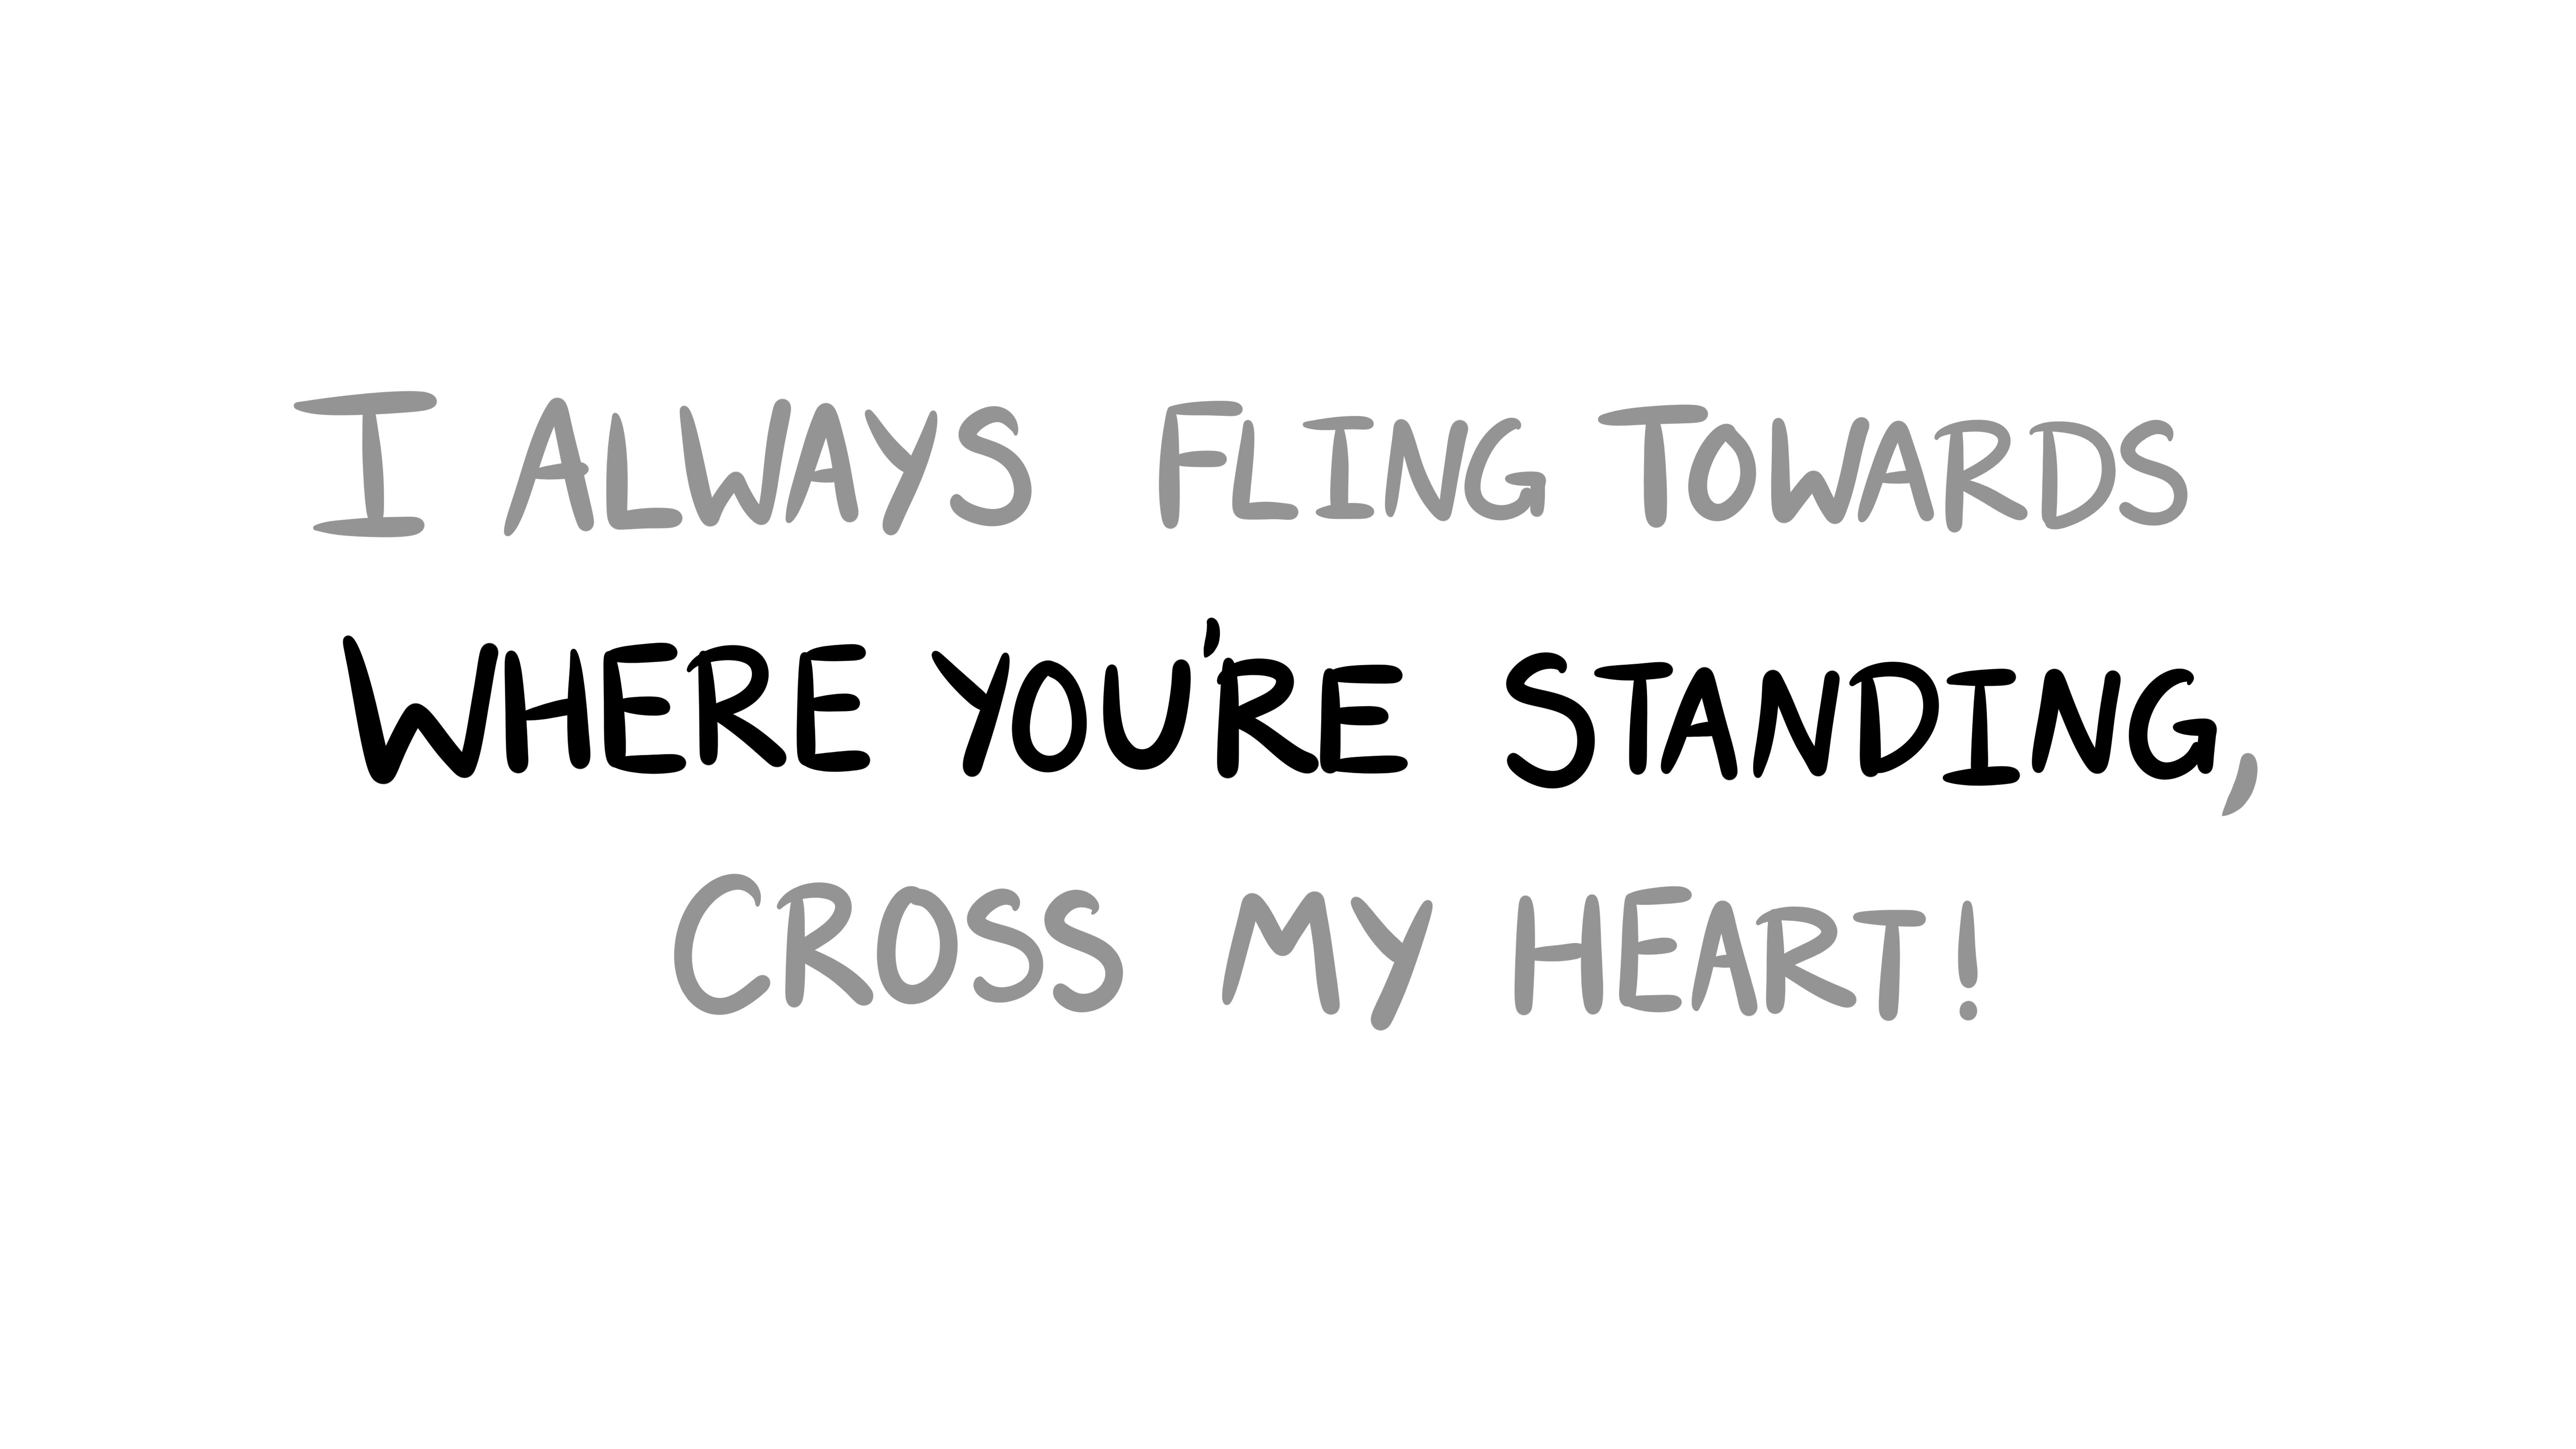 I ALWAYS FLING TOWARDS
WHERE YOU'RE STANDING,
CROSS MY HEART!